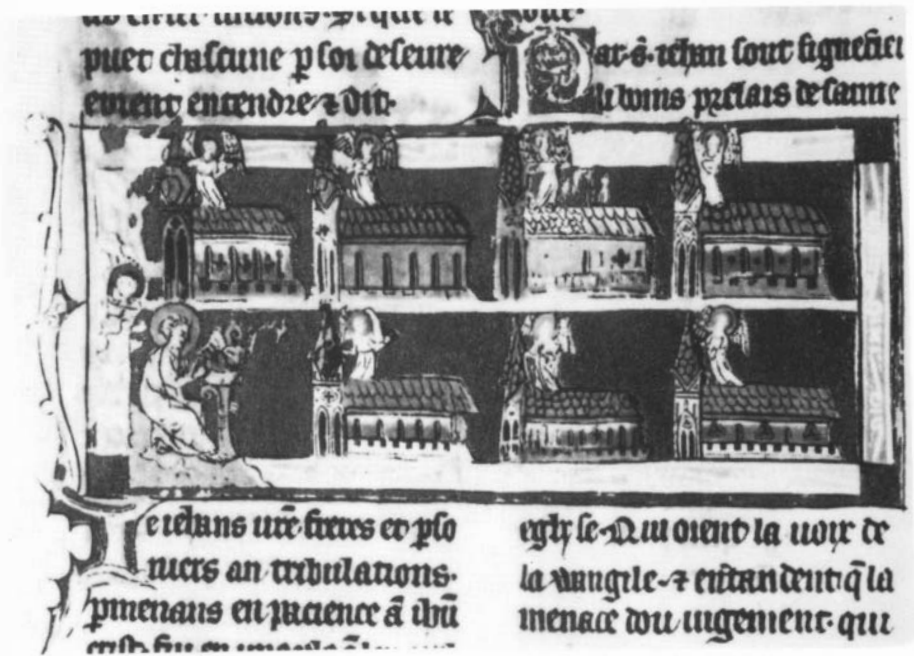 puet chascune p soi deseure
enient entendre ⁊ dit·
Par·s·iehan sont signefiei
li boins prelais de sainte
Je iehans ure freres et pso
niers an tribulations·
pmenans en pacience ā ihū
eglyse·Qui oient la uoix de
la wangile·⁊ entandent q̄ la
menace dou iugement· qui